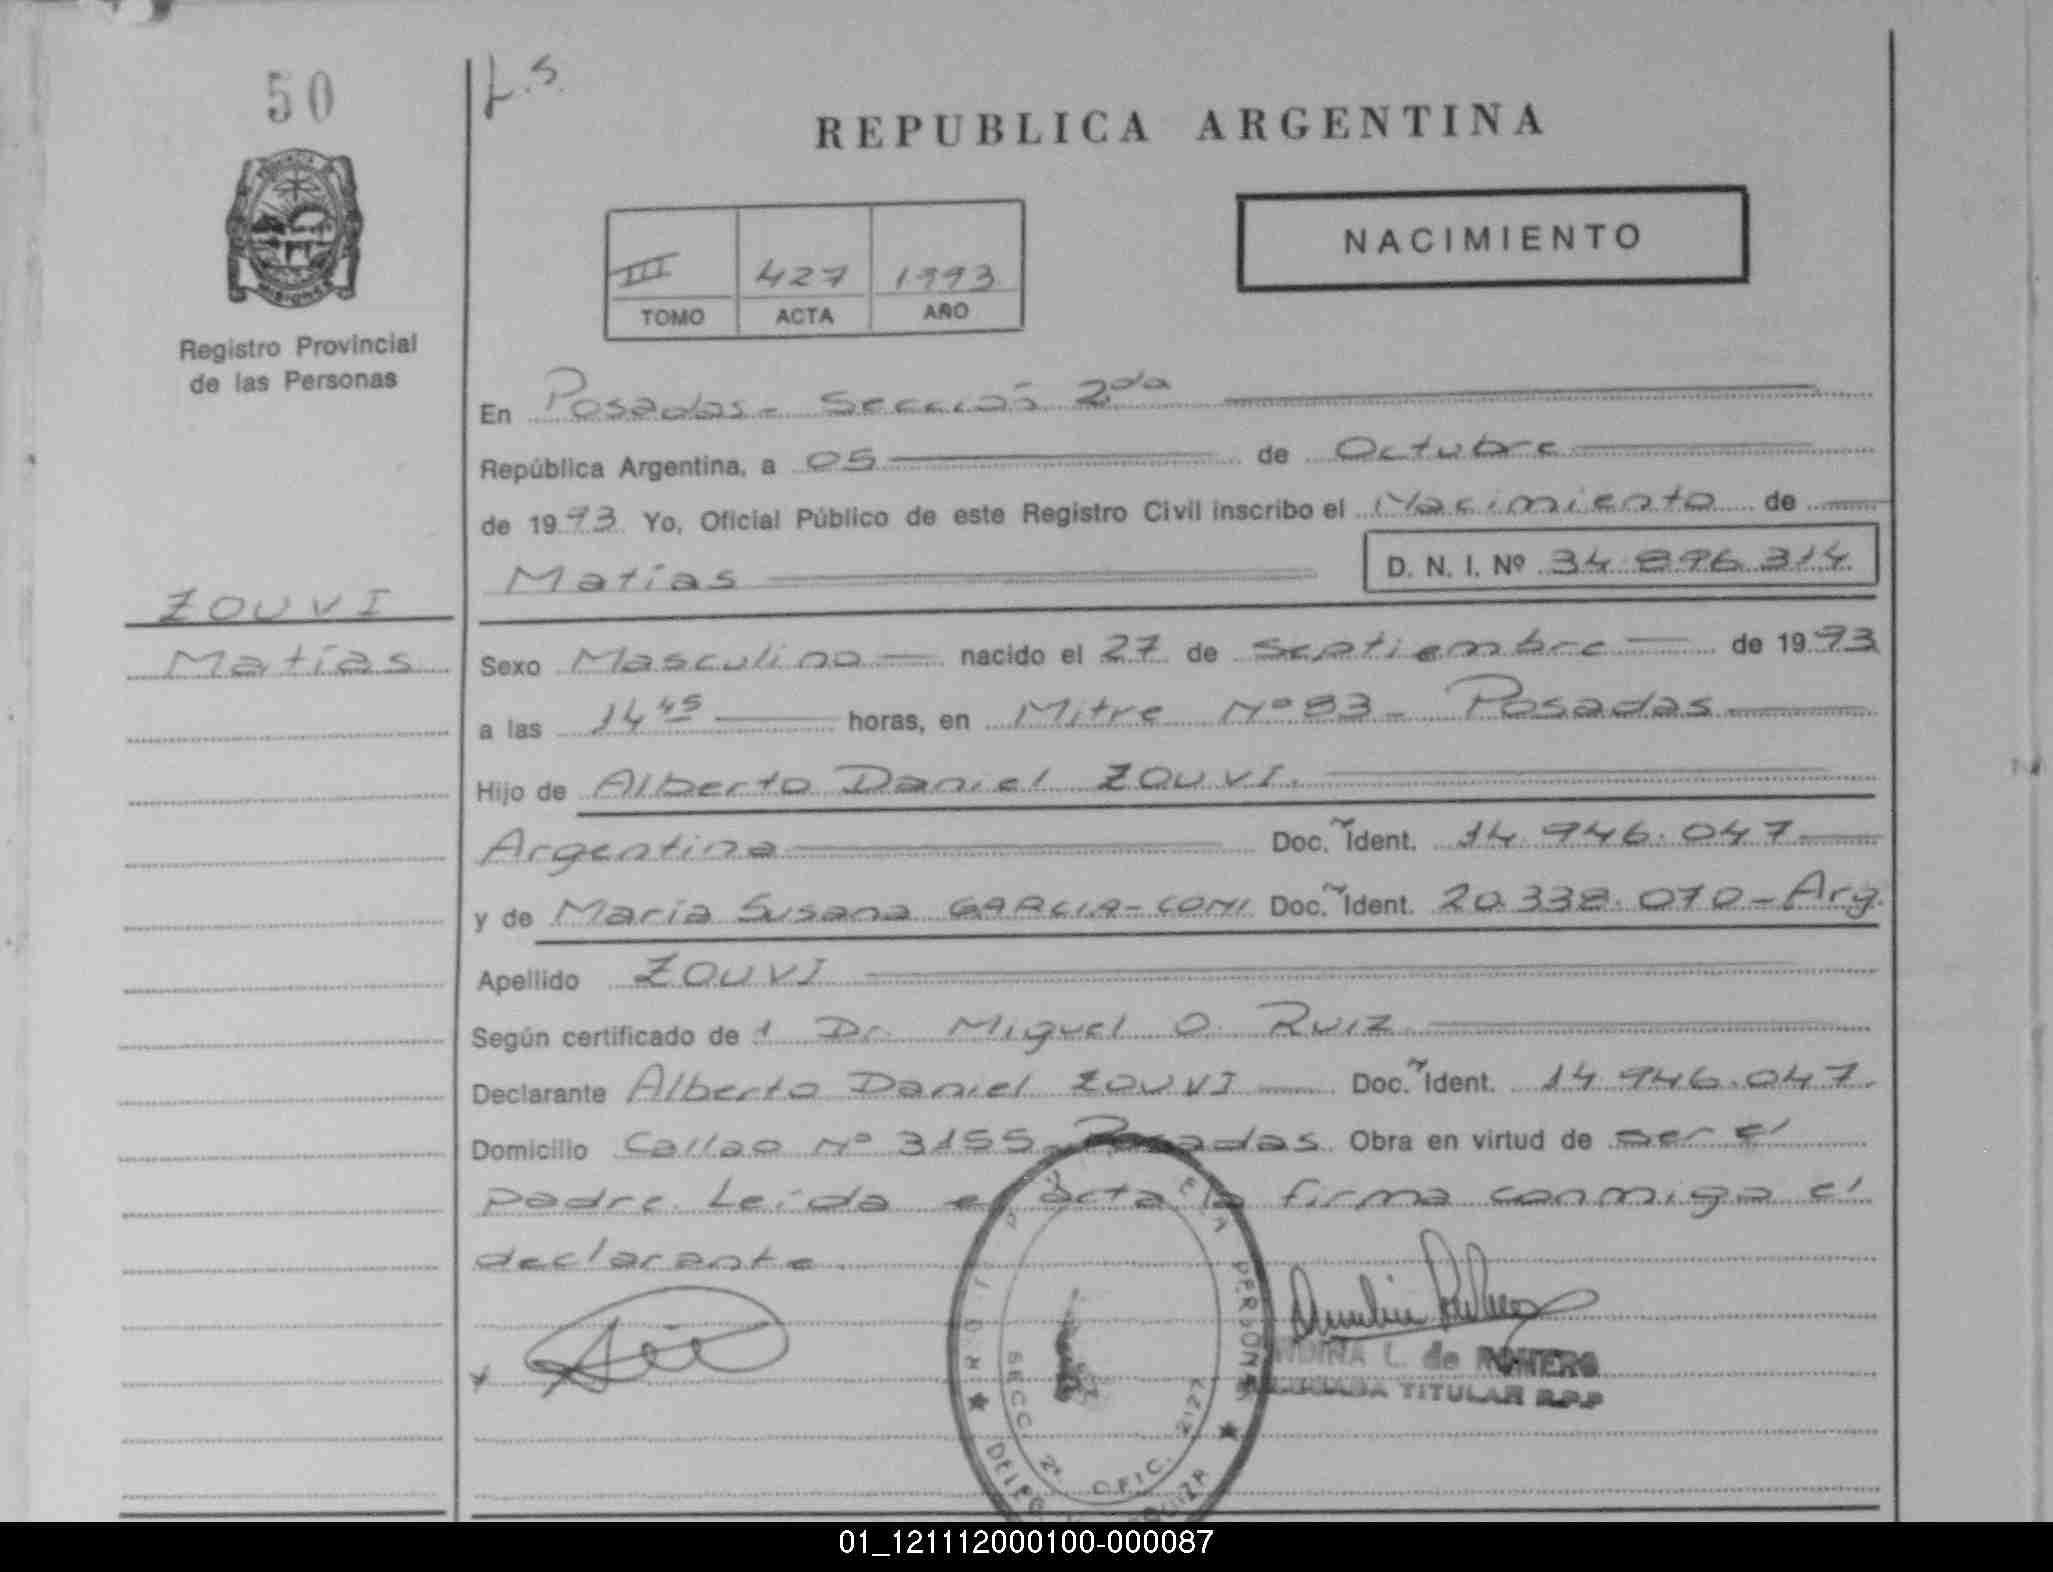 50
L.S.
REPUBLICA ARGENTINA
NACIMIENTO
III 427 1993
TOMO ACTA AÑO
MISIONES
Registro Provincial
de las Personas
En Posadas - Sección 2da
República Argentina, a 05 de Octubre
de 1993 Yo, Oficial Público de este Registro Civil inscribo el Nacimiento de
Matías D. N. I. Nº 34.896.314
ZOUVI
Matías
Sexo Masculino nacido el 27 de Septiembre de 1993
a las 14 45 horas, en Mitre Nº 83 - Posadas
Hijo de Alberto Daniel ZOUVI.
Argentina Doc. Ident. 14.946.047
y de María Susana GARCIA-COMI Doc. Ident. 20.338.070 - Arg.
Apellido ZOUVI
Según certificado de 1 Dr. Miguel O. Ruiz
Declarante Alberto Daniel ZOUVI Doc. Ident. 14.946.047.
Domicilio Callao Nº 3155 - Posadas. Obra en virtud de ser el
padre. Leída el acta la firma conmigo el
declarante.
L. de ROMERO
TITULAR R.P.P
PERSONA
SECC. 2ª OFIC. 2127
DELEG
01_121112000100-000087